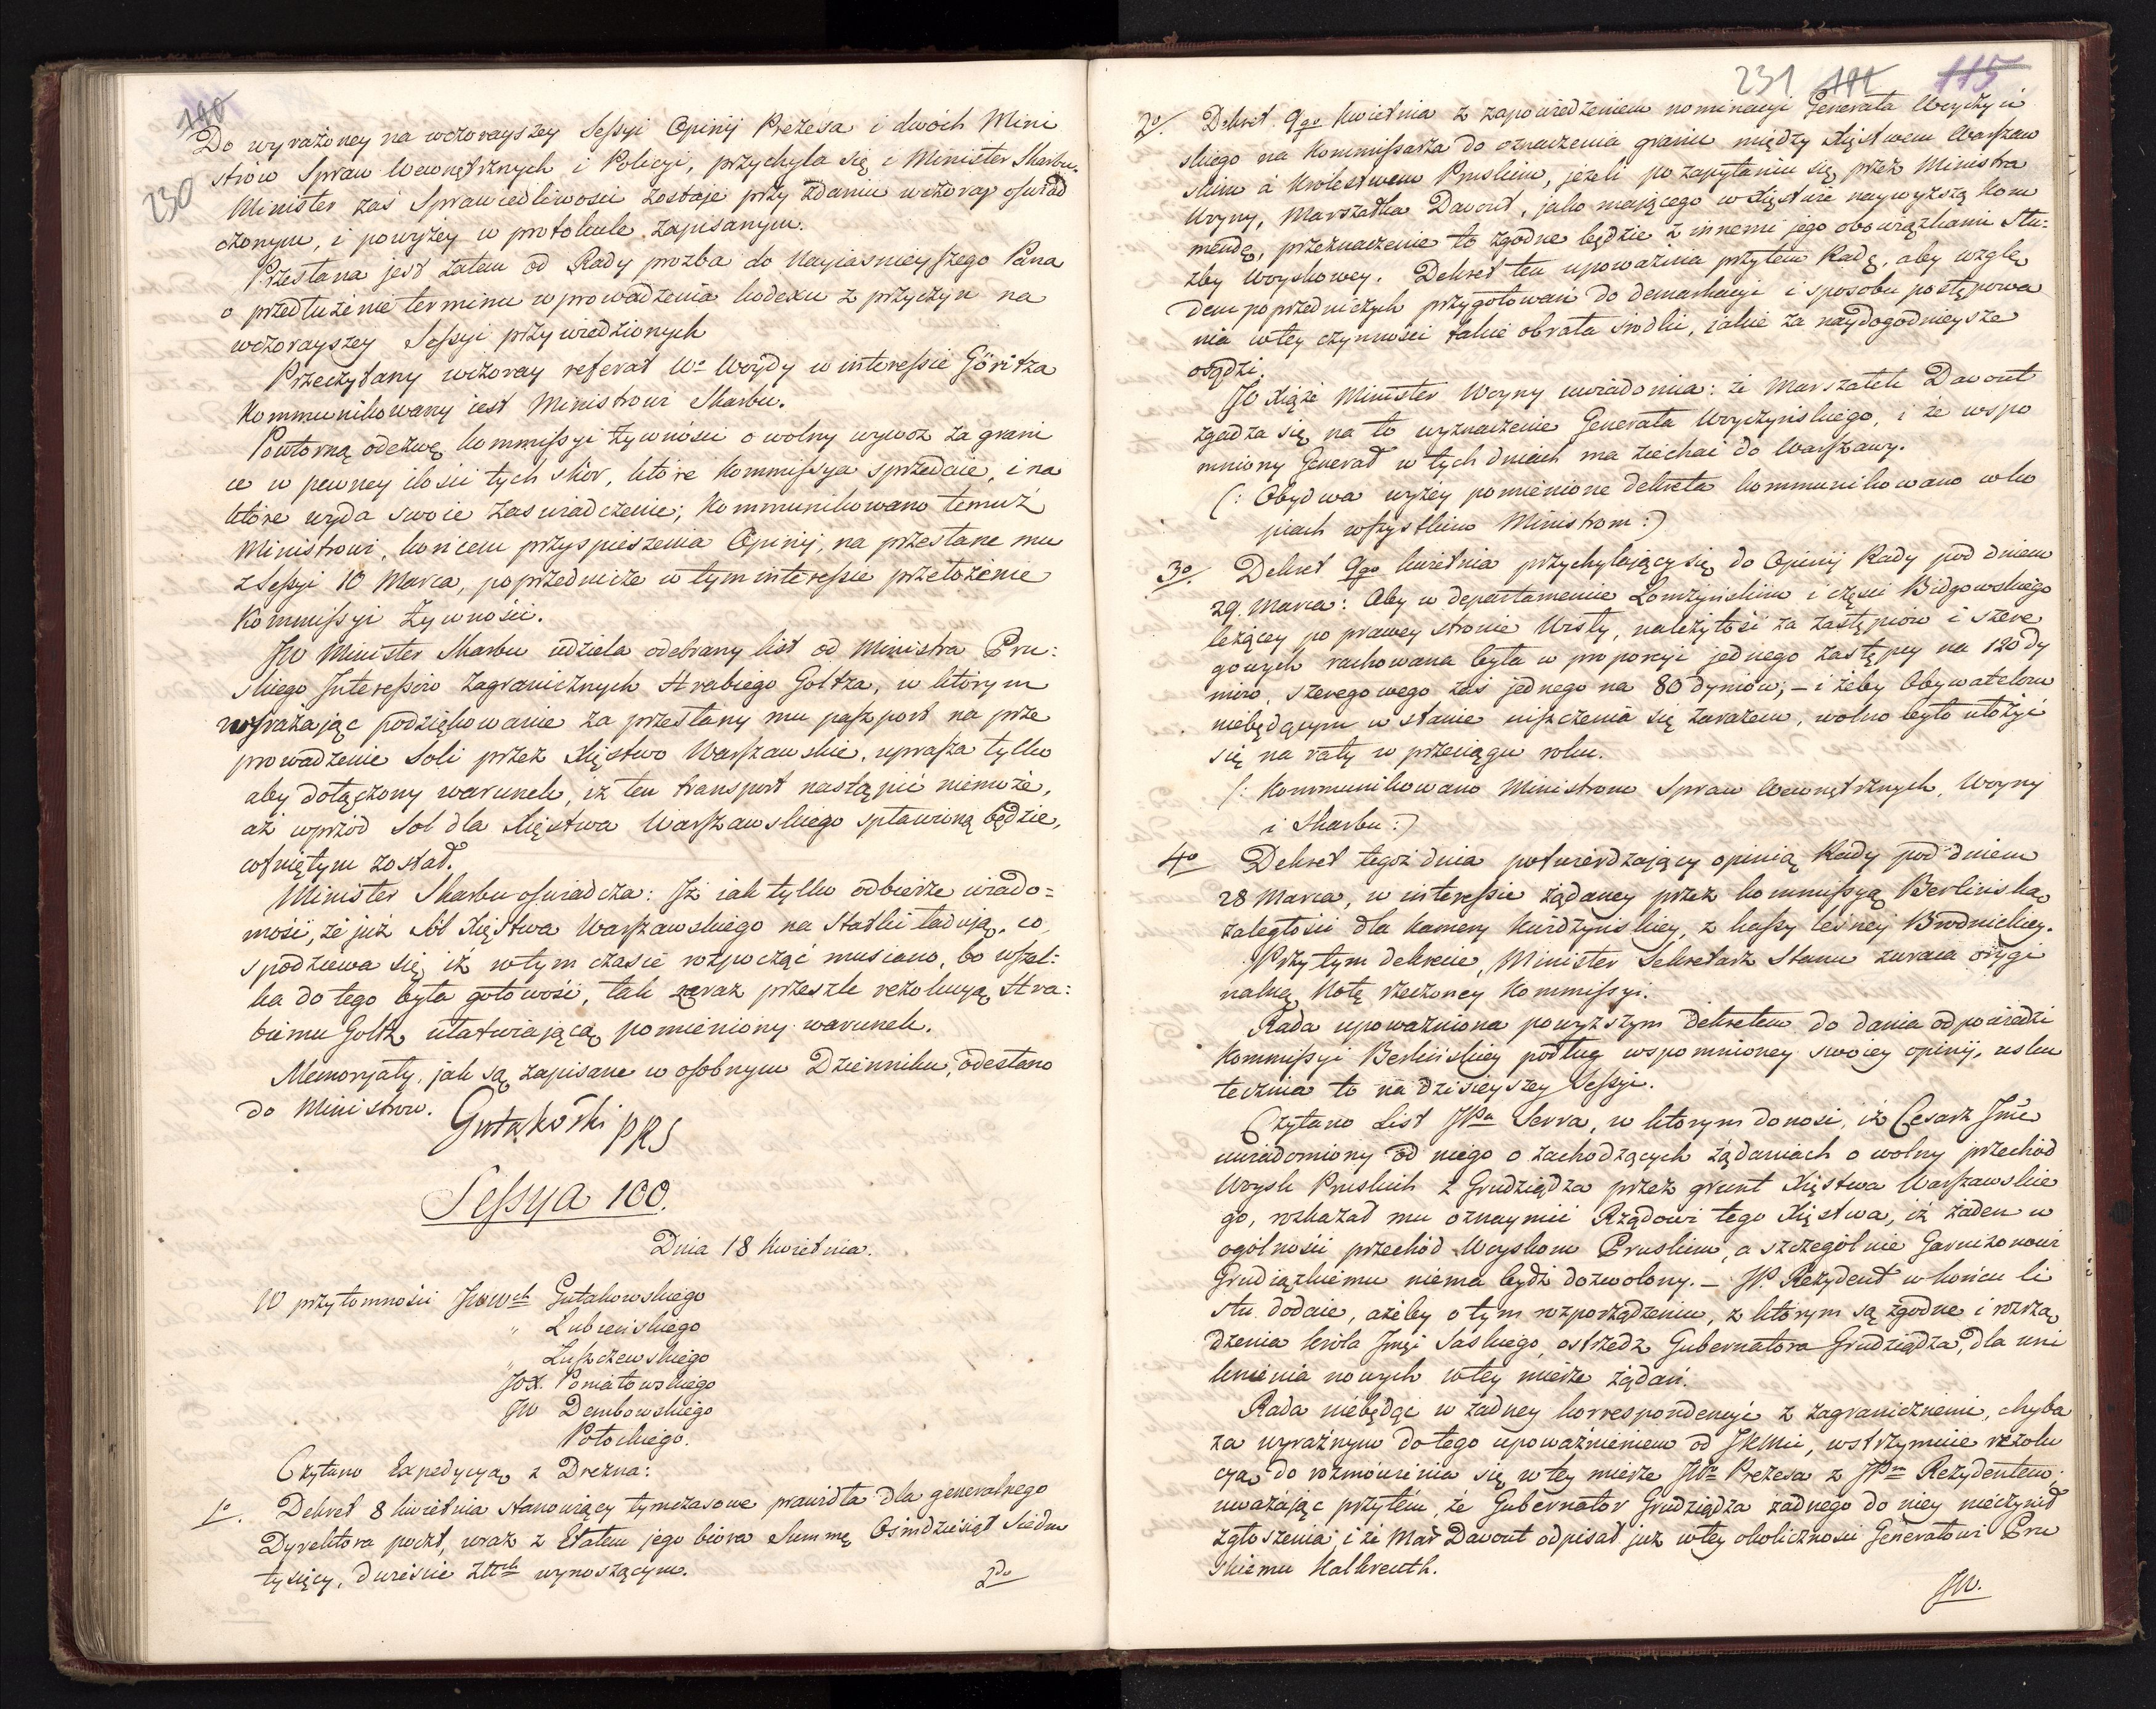 190
230
Do wyrażoney na wczorayszey Sessyi Opinij Prezesa i dwóch Mini
strów Spraw Wewnętrznych i Policyi, przychyla się i Minister Skarbu.
Minister zaś Sprawiedliwości zostaje przy zdaniu wczoray oświad
czonym, i powyżey w protokule zapisanym.
Przesłana jest zatem od Rady prozba do Nayiasnieyszego Pana
o przedłużenie terminu wprowadzenia kodexu z przyczyn na
wczorayszey Sessyi przywiedzionych
Przeczytany wczoray referat Wo Woydy w interessie Göritza
kommunikowany iest Ministrowi Skarbu.
Powtorną odezwę kommissyi żywności o wolny wywoz za grani
ce w pewney ilości tych skór, które kommissya sprzedaie, i na
które wyda swoie zaswiadczenie; kommunikowano temuż
Ministrowi, końcem przyspieszenia Opinij, na przesłane mu
z Sessyi 10 Marca, poprzednicze w tym interessie przełożenie
kommissyi żywności.
JW Minister Skarbu udziela odebrany list od Ministra Pru:
skiego Interessów zagranicznych Hrabiego Goltza, w którym
wyrażając podziękowanie za przesłany mu paszport na prze
prowadzenie soli przez Xięstwo Warszawskie, uprasza tylko
aby dołączony warunek, iż ten transport nastąpić niemoże,
aż wprzód sol dla Xięstwa Warszawskiego spławioną będzie,
cofniętym został.
Minister Skarbu oświadcza: Iż iak tylko odbierze wiado=
mość, że już sól Xięstwa Warszawskiego na Statki ładują, co,
spodziewa się, iż w tym czasie rozpocząć musiano, bo wszel:
ka do tego była gotowość, tak zaraz przeszle rezolucyą Hra:
biemu Goltz, ułatwiającą pomieniony warunek.
Memoryały, jak są zapisane w osobnym Dzienniku, odesłano
do Ministrow.
Gutakowski PRS
Sessya 100.
Dnia 18 Kwietnia.
W przytomności JWWch Gutakowskiego
" Lubieńskiego
" Łuszczewskiego
JOX. Poniatowskiego
JW Dembowskiego
Potockiego.
Czytano Expedycyą z Drezna:
1o. Dekret 8 kwietnia stanowiący tymczasowe prawidła dla generalnego
Dyrektora poczt, wraz z Etatem jego biora Summę Ośmdziesiąt Siedm
tysięcy, dwieście złtch wynoszącym.
2do
231 191 115
2o. Dekret 9go kwietnia z zapowiedzeniem nominacyi Generała Woyczyń
skiego na kommissarza do oznaczenia granic między Xięstwem Warszaw
skim a Królestwem Pruskim, jeżeli po zapytaniu się przez Ministra
Woyny, Marszałka Davout, jako mającego w Xięstwie naywyższą kom
mendę, przeznaczenie to zgodne będzie z innemi jego obowiązkami Słu:
żby Woyskowey. Dekret ten upoważnia przytem Radę, aby wzglę
dem poprzedniczych przygotowań do demarkacyi i sposobu postępowa
nia w tey czynności takie obrała środki, iakie za naydogodnieysze
osądzi.
JO Xiąże Minister Woyny uwiadomia: że Marszałek Davout
zgadza się na to wyznaczenie Generała Woyczyńskiego, i że wspo
mniony Generał w tych dniach ma ziechać do Warszawy.
(: Obydwa wyżey pomienione dekreta kommunikowano w ko
piach wszystkim Ministrom :)
3o. Dekret 9go kwietnia przychylający się do Opinij Rady pod dniem
29. Marca: Aby w departamencie Łomżyńskim i części Bidgowskiego
leżącey po prawey stronie Wisły, należytość za zastępców i szere
gowych rachowana była w proporcyi jednego zastępcy na 120 dy
mów, szeregowego zaś jednego na 80 dymów; – i żeby Obywatelom
niebędącym w stanie uiszczenia się zarazem, wolno było ułożyć
się na raty w przeciągu roku.
(: Kommunikowano Ministrom Spraw Wewnętrznych, Woyny
i Skarbu :)
4o Dekret tegoż dnia potwierdzający opinią Rady pod dniem
28 Marca, w interessie żądaney przez kommissyą Berlińską
zaległości dla kamery kwidzyńskiey, z kassy leśney Brodnickiey.
Przy tym dekrecie, Minister Sekretarz Stanu zwraca orygi
nalną Notę rzeczoney kommissyi.
Rada upoważniona powyższym dekretem do dania odpowiedzi
kommissyi Berlińskiey podług wspomnioney swoiey opinij, usku
tecznia to na dzisieyszey Sessyi.
Czytano List JPa Serra, w którym donosi, iż Cesarz Jmć
uwiadomiony od niego o zachodzących żądaniach o wolny przechód
Woysk Pruskich z Grudziądza przez grunt Xięstwa Warszawskie
go, rozkazał mu oznaymić Rządowi tego Xięstwa, iż żaden w
ogólności przechód Woyskom Pruskim, a szczególnie Garnizonowi
Grudiązkiemu niema bydź dozwolony. – JP. Rezydent w końcu li
stu dodaie, ażeby o tym rozporządzeniu, z którym są zgodne i rozrzą
dzenia króla Jmci Saskiego, ostrzedz Gubernatora Grudziądza, dla uni
knienia nowych w tey mierze żądań.
Rada niebędąc w żadney korrespondencyi z zagranicznemi, chyba
za wyraźnym do tego upoważnieniem od JKMci, wstrzymuie rezolu
cyą do rozmówienia się w tey mierze JWo Prezesa z JPm Rezydentem;
uważając przytém, że Gubernator Grudziądza żadnego do niey nieczynił
zgłoszenia; i że Mar Davout odpisał już w tey okoliczności Generałowi Pru
skiemu Kalkreuth.
JW.